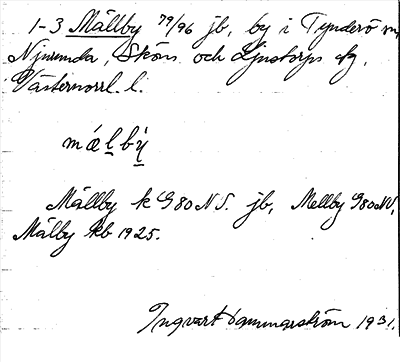 1-3 Mällby 79/96 jb, by i Tynderö m,
Njurunda, Sköns och Ljustorps tg,
Västernorrl. l.
mǽl̠bý̠
Mällby k G80NS. jb, Mellby G80NV,
Mälby kb 1925.
Ingvart Hammarström 1931.